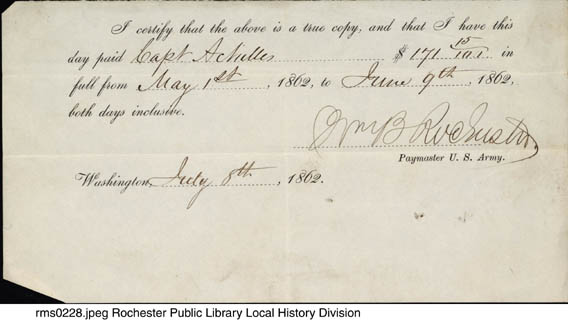 I certify that the above is a true copy, and that I have this
day paid Capt Achilles $ 171 15/100 in
full from May 1st, 1862, to June 9th, 1862,
both days inclusive.
Wm B Rochester
Paymaster U. S. Army.
Washington, July 8th, 1862.
rms0228.jpeg Rochester Public Library Local History Division